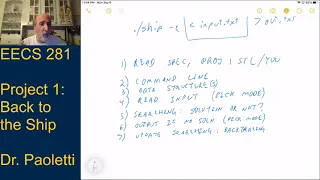 EECS 281
Project 1:
Back to
the Ship
Dr. Paoletti
./ship -c < input.txt > out.txt
1) READ SPEC, PROJ 1 STL/YOU
2) COMMAND LINE
3) DATA STRUCTURE(S)
4) READ INPUT (DECK MODE)
5) SEARCHING: SOLUTION OR NOT?
6) OUTPUT IF NO SOLN (DECK MODE)
7) UPDATE SEARCHING: BACKTRACING